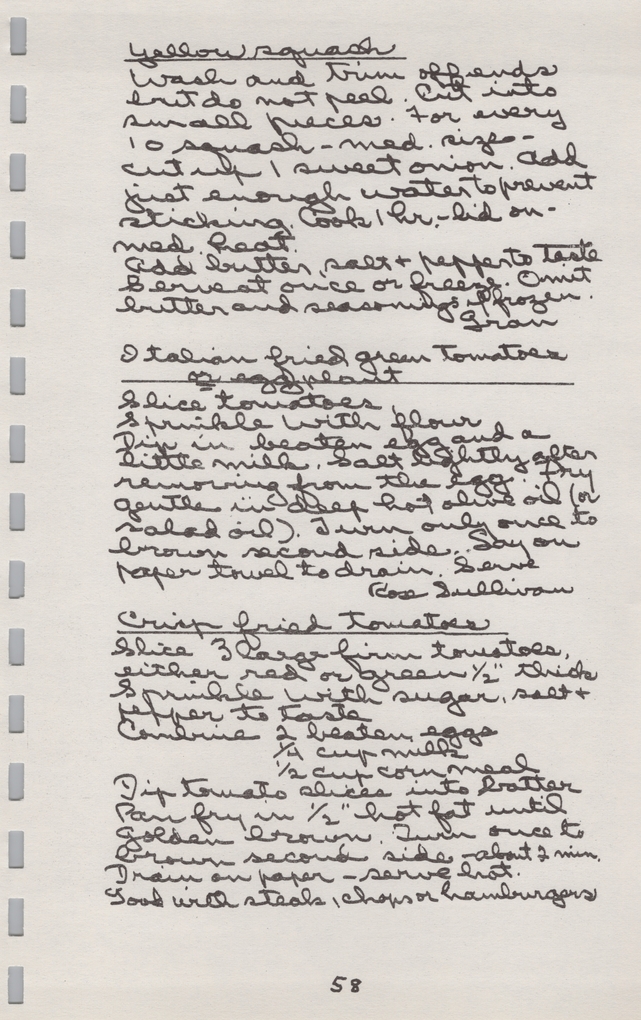 Yellow squash
Wash and trim off ends
but do not peel. Cut into
small pieces. For every
10 squash - med. size -
cut up 1 sweet onion. Add
just enough water to prevent
sticking. Cook 1 hr. - lid on -
med. heat.
Add butter, salt + pepper to taste
Serve at once or freeze. Omit
butter and seasonings if frozen.
Gran
Italian fried green tomatoes
or eggplant
Slice tomatoes
Sprinkle with flour
Dip in beaten egg and a
little milk. Salt lightly after
removing from the egg. Fry
gentle in deep hot olive oil (or
salad oil). Turn only once to
brown second side. Say on
paper towel to drain. Serve
Rose Sullivan
Crisp fried tomatoes
Slice 3 large firm tomatoes,
either red or green 1/2" thick
Sprinkle with sugar, salt +
pepper to taste
Combine 2 beaten eggs
1/4 cup milk
1/2 cup corn meal
Dip tomato slices into batter
Pan fry in 1/2" hot fat until
golden brown. Turn once to
brown second side - about 2 min.
Drain on paper - serve hot.
Good with steaks, chops or hamburgers
58